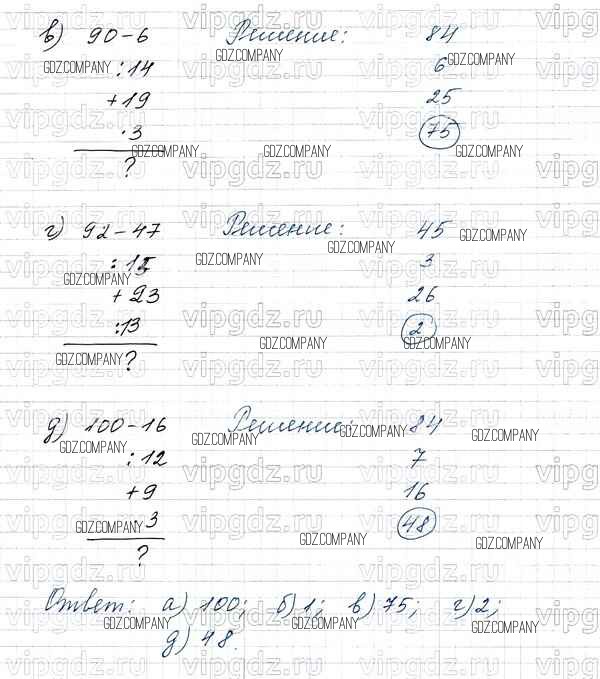 в) 90-6 Решение: 84
:14 6
+19 25
·3 75
?
г) 92-47 Решение: 45
:15 3
+23 26
:13 2
?
д) 100-16 Решение: 84
:12 7
+9 16
3 48
?
Ответ: а) 100; б) 1; в) 75; г) 2;
д) 48.
GDZ.COMPANY
vipgdz.ru